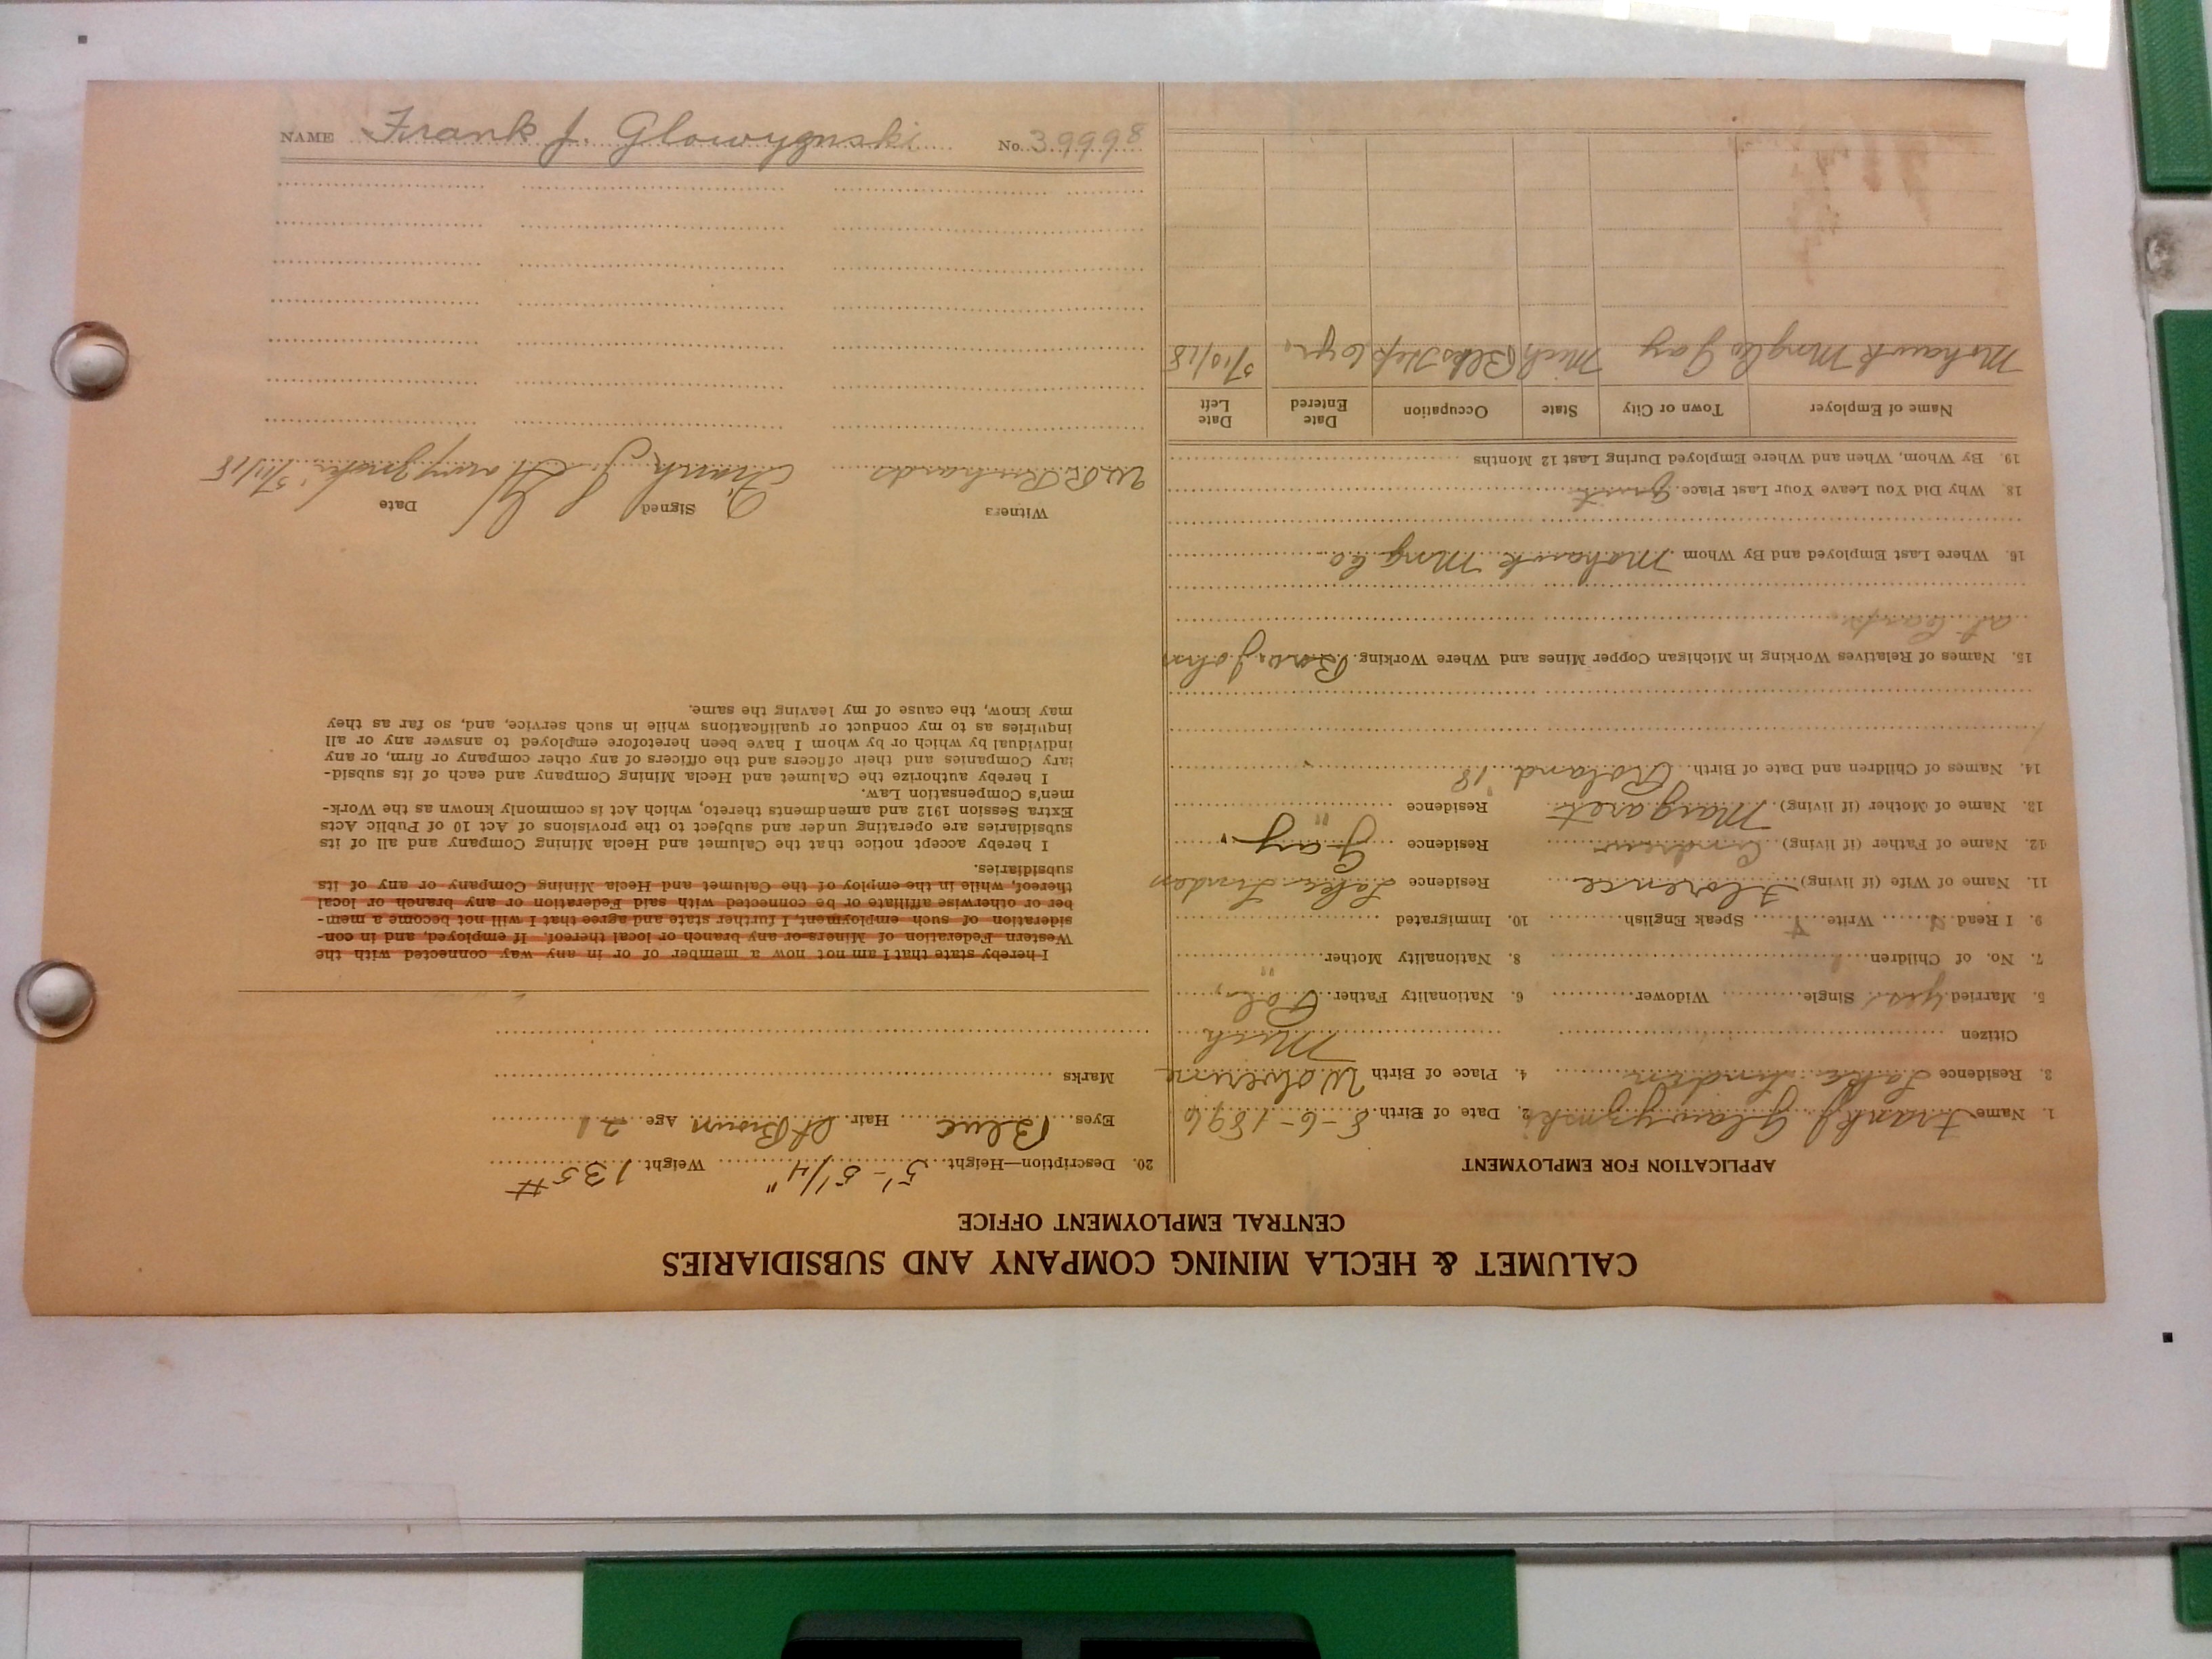 NAME Frank J. Glowyznski No. 39998
CALUMET & HECLA MINING COMPANY AND SUBSIDIARIES
CENTRAL EMPLOYMENT OFFICE
APPLICATION FOR EMPLOYMENT
1. Name Frank J Glawyznski 2. Date of Birth 8-6-1896
3. Residence Lake Linden 4. Place of Birth Wolverine
Mich
Citizen
5. Married yes Single Widower 6. Nationality Father Pole
7. No. of Children 8. Nationality Mother "
9. I Read Y Write Y Speak English 10. Immigrated
11. Name of Wife (if living) Florence Residence Lake Linden
12. Name of Father (if living) Andrew Residence Gay
13. Name of Mother (if living) Margaret Residence "
14. Names of Children and Date of Birth Roland '18
15. Names of Relatives Working in Michigan Copper Mines and Where Working Bro, John
at
16. Where Last Employed and By Whom Mohawk Mng Co
18. Why Did You Leave Your Last Place quit
19. By Whom, When and Where Employed During Last 12 Months
Name of Employer Town or City State Occupation Date Entered Date Left
Mohawk Mng Co Gay Mich Blks Hlp 6 yrs 5/10/18
20. Description—Height 5'-5 1/4" Weight 135#
Eyes Blue Hair Lt Brown Age 21
Marks
I hereby state that I am not now a member of or in any way connected with the
Western Federation of Miners or any branch or local thereof. If employed, and in con-
sideration of such employment, I further state and agree that I will not become a mem-
ber or otherwise affiliate or be connected with said Federation or any branch or local
thereof, while in the employ of the Calumet and Hecla Mining Company or any of its
subsidiaries.
I hereby accept notice that the Calumet and Hecla Mining Company and all of its
subsidiaries are operating under and subject to the provisions of Act 10 of Public Acts
Extra Session 1912 and amendments thereto, which Act is commonly known as the Work-
men's Compensation Law.
I hereby authorize the Calumet and Hecla Mining Company and each of its subsid-
iary Companies and their officers and the officers of any other company or firm, or any
individual by which or by whom I have been heretofore employed to answer any or all
inquiries as to my conduct or qualifications while in such service, and, so far as they
may know, the cause of my leaving the same.
Witness Signed Date
W.R. Richards Frank J. Glawyznski 5/11/18